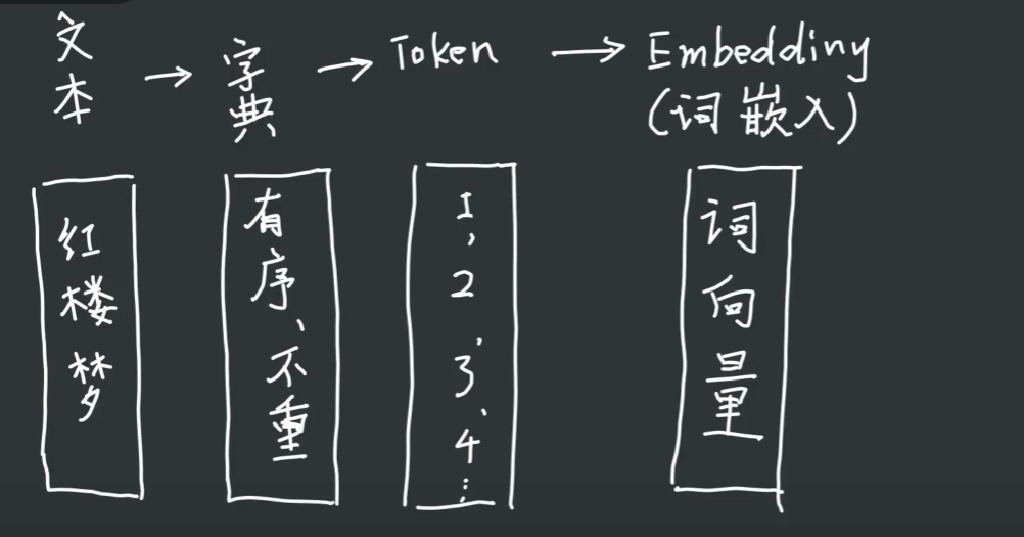 文本 → 字典 → Token → Embedding
(词嵌入)
红楼梦
有序、不重
1, 2, 3、4…
词向量